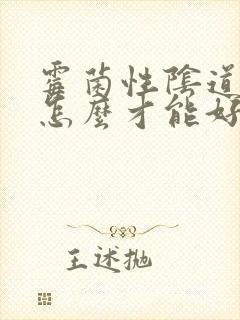 霉菌性陰道
怎麼才能好
王述抛